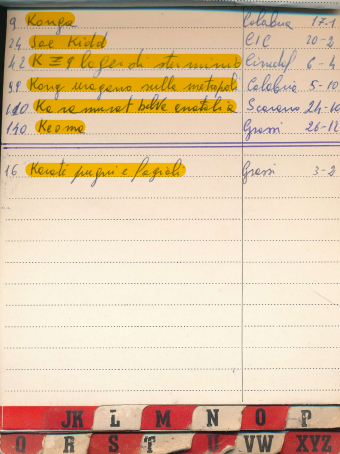 9 Konga Calabria 17-1
24 Joe Kidd CIC 20-2
42 K Z 9 lager di sterminio Cinedaf 6-4
99 Kong uragano sulla metropoli Calabria 5-10
110 Karamurat belve umana Scarano 24-10
140 Keoma Grassi 26-12
16 Karate pugni e fagioli Grassi 3-2
JK L M N O P
Q R S T U VW XYZ